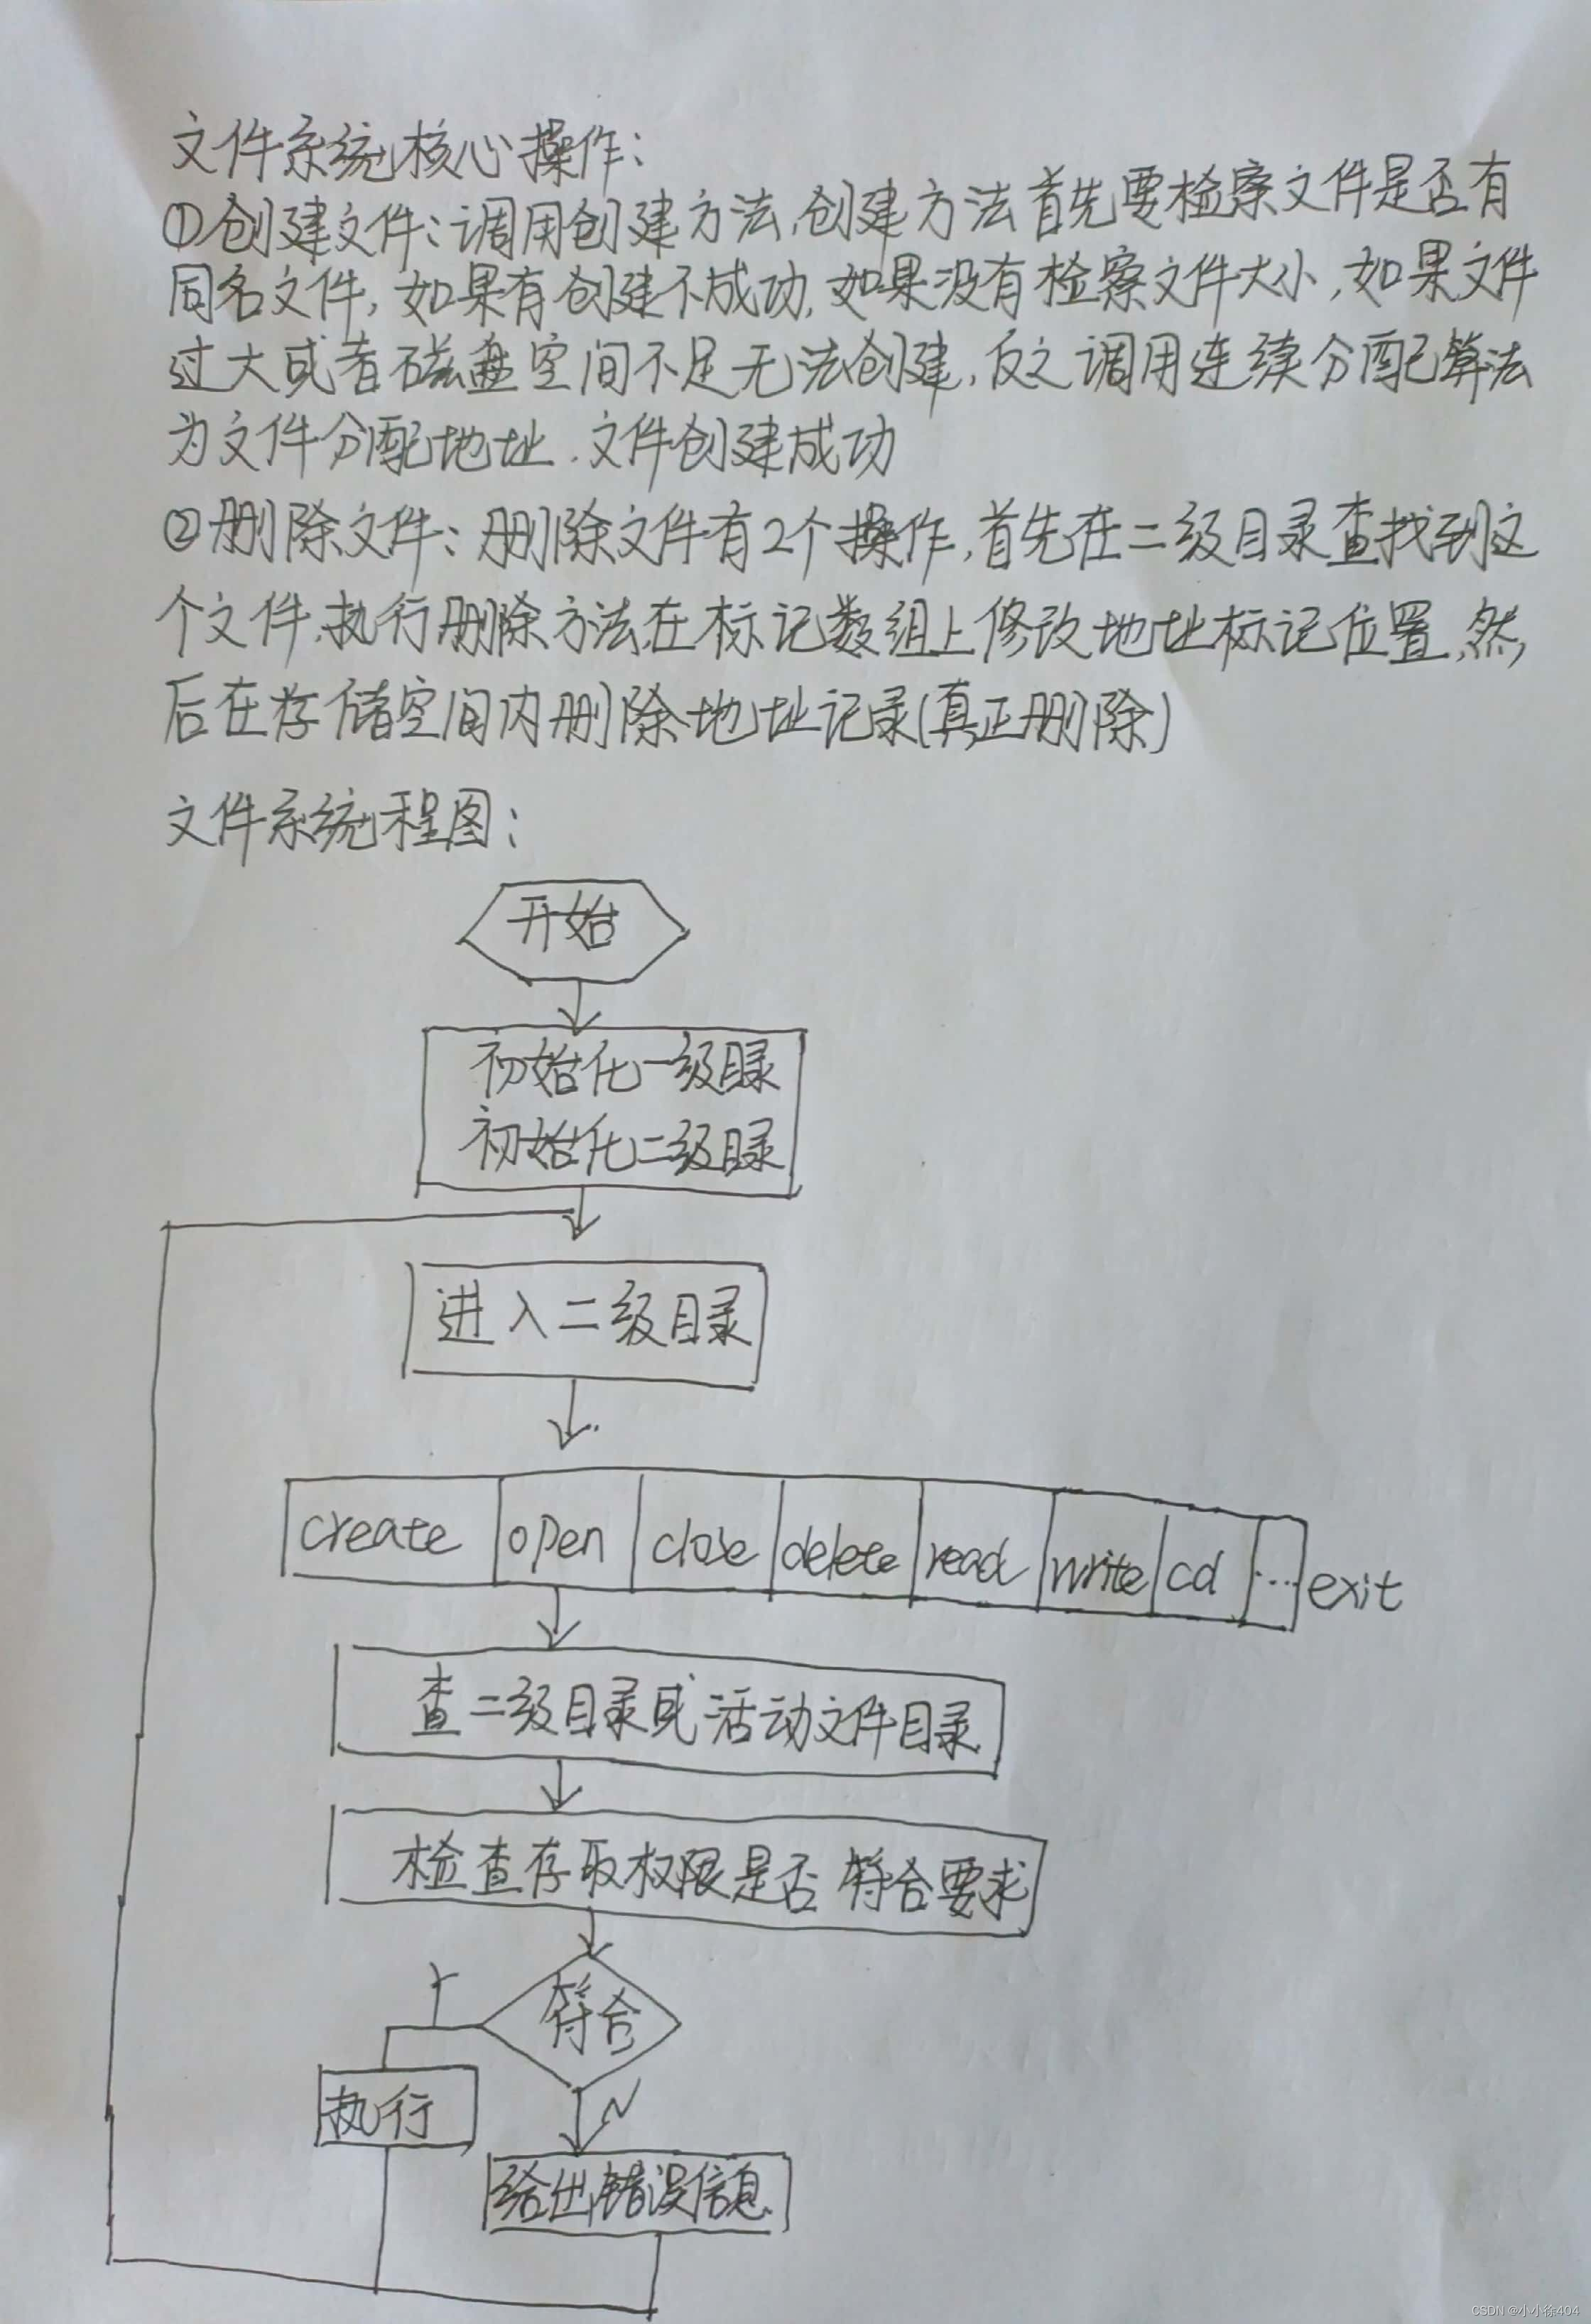 文件系统核心操作:
①创建文件:调用创建方法,创建方法首先要检察文件是否有
同名文件,如果有创建不成功,如果没有检察文件大小,如果文件
过大或者磁盘空间不足无法创建,反之调用连续分配算法
为文件分配地址.文件创建成功
②删除文件:删除文件有2个操作,首先在二级目录查找到这
个文件,执行删除方法,在标记数组上修改地址标记位置,然
后在存储空间内删除地址记录(真正删除)
文件系统程图:
开始
初始化一级目录
初始化二级目录
进入二级目录
create open close delete read write cd ... exit
查二级目录或活动文件目录
检查存取权限是否符合要求
Y
符合
执行
N
给出错误信息
CSDN @小小徐404